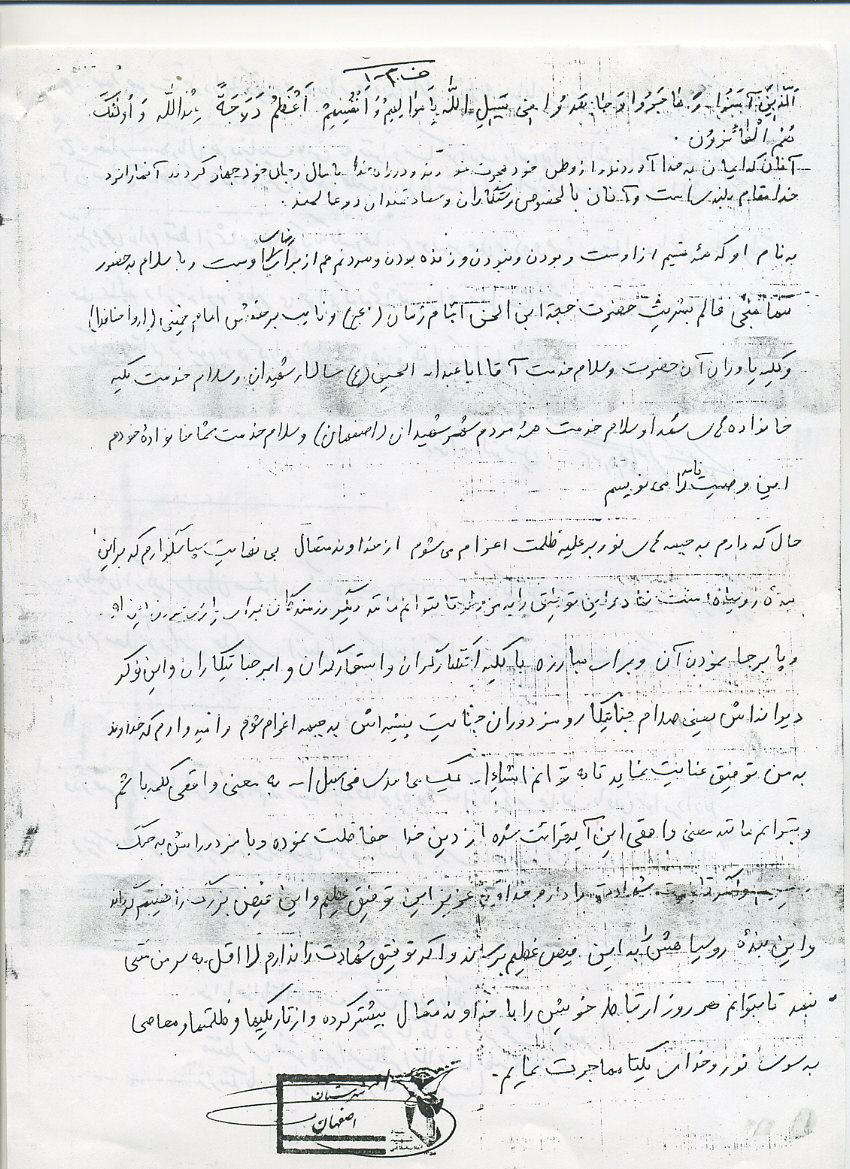 اَلَّذِینَ آمَنُوا وَ هاجَرُوا وَ جاهَدُوا فی سَبیلِ اللّهِ بِاَموالِهِمْ وَ اَنْفُسِهِمْ اَعْظَمُ دَرَجَةً عِنْدَاللّه وَ اُولئِکَ
هُمُ الْفائِزوُن .
آنان که ایمان به خدا آوردند و از وطن خود هجرت نمودند و در راه خدا با مال و جان خود جهاد کردند آنها را نزد
خدا مقام بلندی است و آنان بالخصوص رستگاران و سعادتمندان دو عالمند .
به نام او که همه هستیم از اوست و بودن و نبودن و زنده بودن و مردنم هم از برای رضای اوست و با سلام به حضور
منجی عالم بشریت حضرت حجة ابن الحسن امام زمان (عج) و نایب برحقش امام خمینی (ارواحنافدا)
و کلیه یاوران آن حضرت و سلام خدمت آقا ابا عبدالله الحسین (ع) سالار شهیدان و سلام خدمت کلیه
خانواده های شهدا و سلام خدمت همۀ مردم شهر شهیدان (اصفهان) و سلام خدمت شما خانوادۀ خودم
این وصیت نامه را می نویسم
حال که دارم به جبهه های نور بر علیۀ ظلمت اعزام می شوم از خداوند متعال بی نهایت سپاسگزارم که بر این
بندۀ روسیاه منت نهاد و این توفیق را به من داد تا بتوانم مانند دیگر رزمندگان برای یاری دین
و پا برجا نمودن آن و برای مبارزه با کلیه استثمارگران و استعمارگران و ابرجنایتکاران و این نوکر
دیوانه اش یعنی صدام جنایتکار و مزدوران جنایت پیشه اش به جبهه اعزام شوم و امیدوارم که خداوند
به من توفیق عنایت نماید تا بتوانم انشاءا... یک مجاهد فی سبیل ا... به معنی واقعی کلمه باشم
و بتوانم مانند معنی واقعی این آیه قرائت شده از دین خدا حفاظت نموده و با مزدورانش به جنگ
شهادت را دارم خداوند عزیز این توفیق عظیم و این فیض بزرگ را نصیبم گرداند
و این بندۀ روسیاهش را به این فیض عظیم برساند و اگر توفیق شهادت را ندارم لااقل به من منتی
نهد تا بتوانم هر روز ارتباط خویش را با خداوند متعال بیشتر کرده و از تاریکیها و ظلمتها و معاصی
به سوی نور و خدای یکتا مهاجرت نمایم .
شهرستان
اصفهان